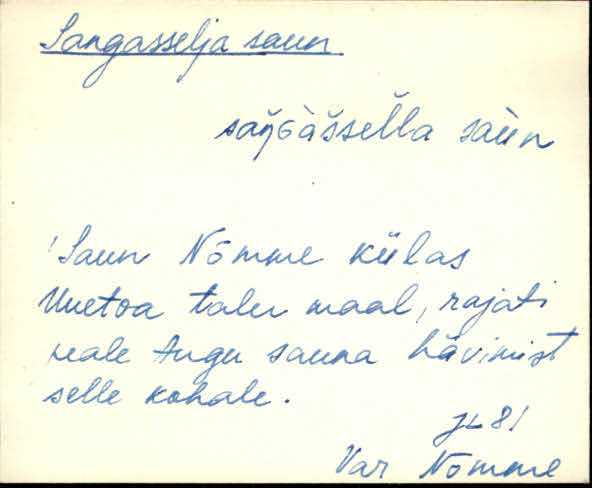 Sangasselja saun
saun
'Saun Nõmme külas
Uuetoa talu maal, rajati
peale Angu sauna hävimist
selle kohale.
JL 81
Var Nõmme